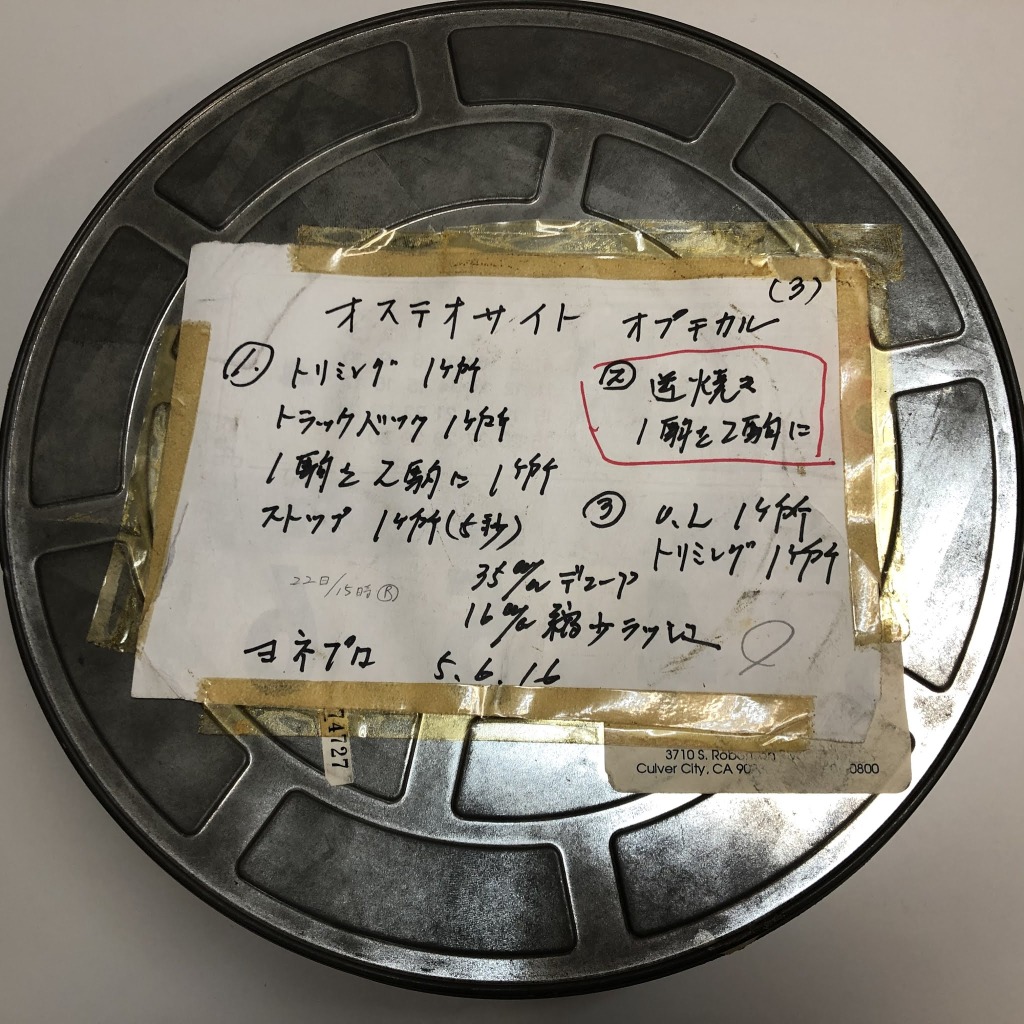 (3)
オステオサイト オプチカル
①. トリミング 1ケ所
トラックバック 1ケ所
1駒を2駒に 1ケ所
ストップ 1ケ所(5秒)
② 逆焼き
1駒を2駒に
③ O.L 1ケ所
トリミング 1ケ所
35m/m デュープ
16m/m 縮少ラッシュ
22日/15時 Ⓡ
ヨネプロ 5.6.16
74727
3710 S.
Culver City, CA 90
0800